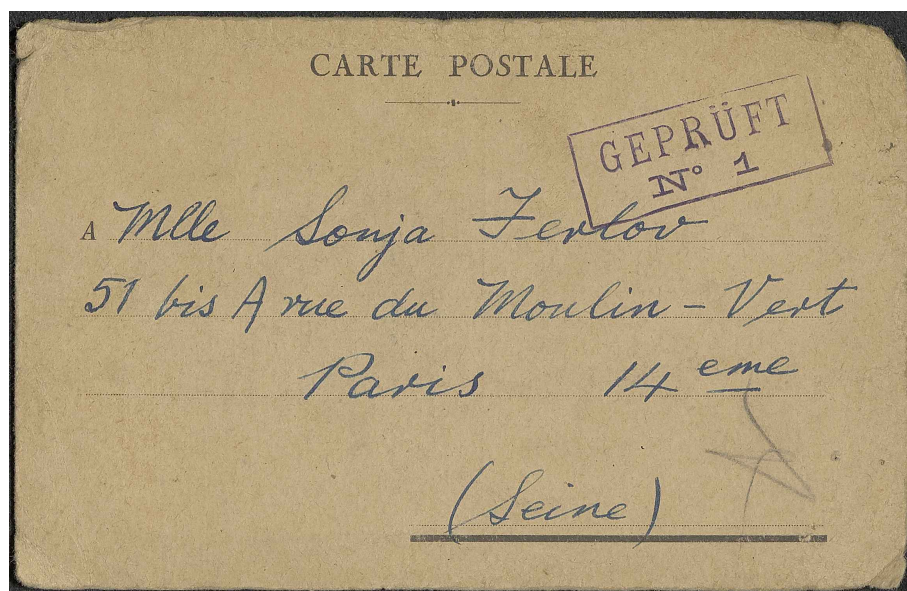 CARTE POSTALE
GEPRÜFT
No 1
A Mlle Sonja Ferlov
51 bis A rue du Moulin-Vert
Paris 14eme
(Seine)